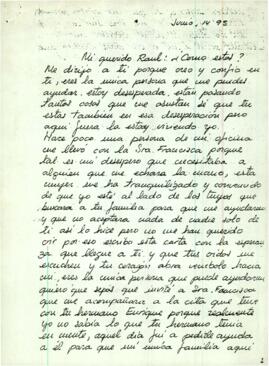 Junio, 14 95
Mi querido Raul: ¿Como estas?
Me dirijo a ti porque creo y confio en
ti, eres la unica persona que me puedes
ayudar. estoy desesperada, estan pasando
tantas cosas que me asustan se que tu
estas tambien en esa desesperación pero
aqui fuera la estoy viviendo yo.
Hace poco una persona de mi oficina
me llevó con la Sra. Francisca porque
tal es mi desespero que necesitaba a
alguien que me echara la mano, esta
mujer me ha tranquilizado y convencido
de que yo este al lado de los tuyos que
buscara a tu familia para que me ayudaran
y que no aceptara nada de nadie solo de
ti asi lo hice pero no me han querido
oir por eso escribo esta carta con la esperan
za que llegue a ti y que tus oidos me
escuchen y tu corazon abra
con la unica persona que puede ayudarme
quiero que sepas que invité a Sra. Francisca
que me acompañara a la cita que tuve
con tu hermano Enrique porque realmente
yo no sabia lo que tu hermano tenia
en mente, aquel dia fui a pedirle ayuda
a él para que mi unica familia aqui